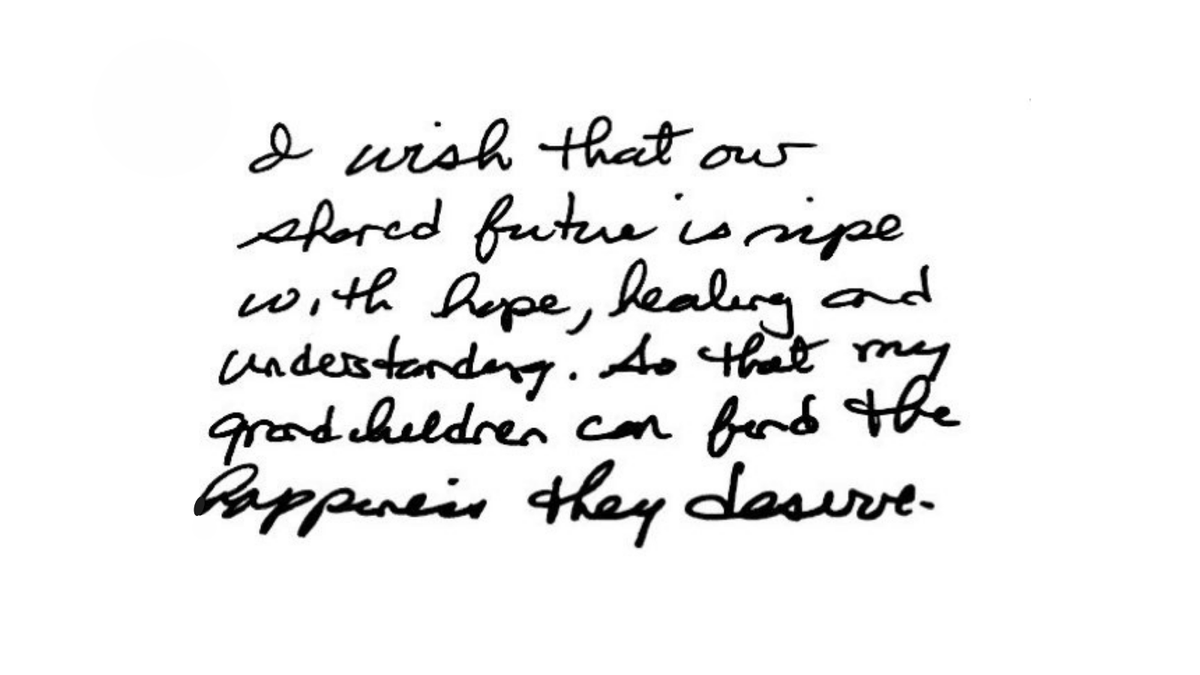 I wish that our
shared future is ripe
with hope, healing and
understanding. So that my
grandchildren can find the
happiness they deserve.